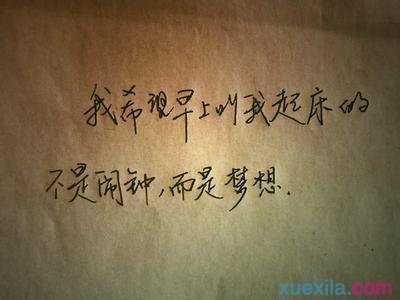 我希望早上叫我起床的
不是闹钟,而是梦想.
xuexila.com